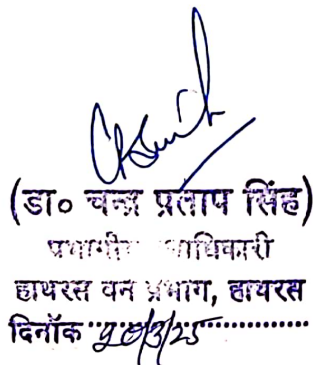 (डा० चन्द्र प्रताप सिंह)
प्रभागीय वनाधिकारी
हाथरस वन प्रभाग, हाथरस
दिनाँक 20/3/25